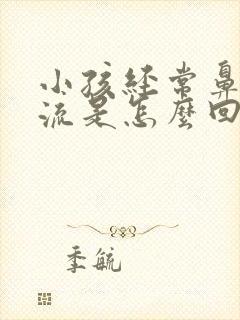 小孩經常鼻
流是怎麼回
季毓